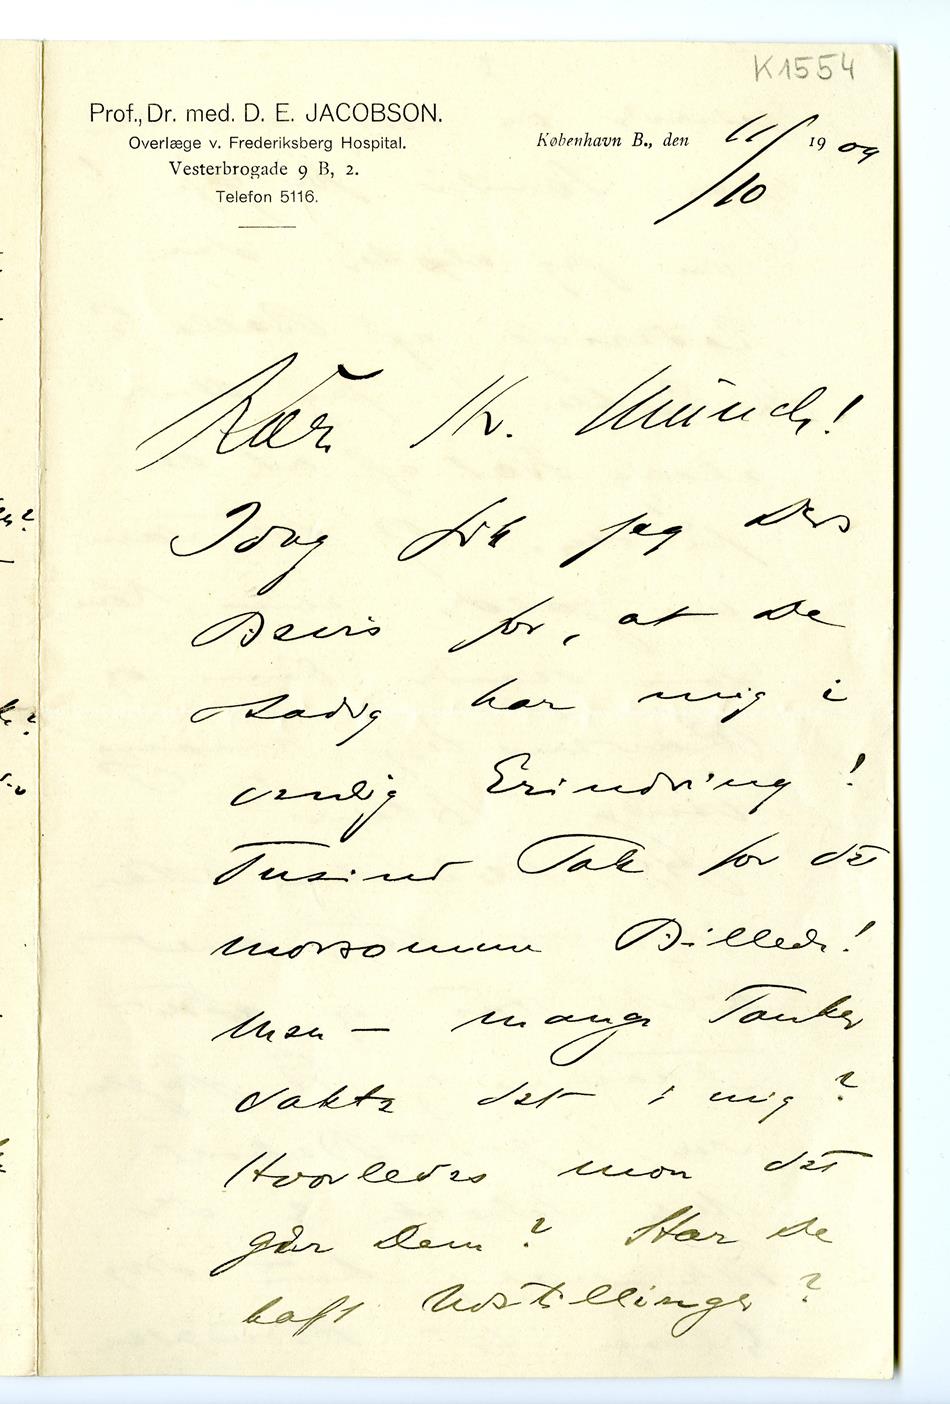 K1554
Prof., Dr. med. D. E. JACOBSON.
Overlæge v. Frederiksberg Hospital.
Vesterbrogade 9 B, 2.
Telefon 5116.
København B., den 11/10 1909
Kære Hr. Munch!
Idag fik jeg Deres
Bevis for, at De
stadig har mig i
venlig Erindring!
Tusind Tak for det
morsomme Billede!
Men — mange Tanker
vakte det i mig?
Hvorledes mon det
går Dem? Har De
haft Udstillinger?